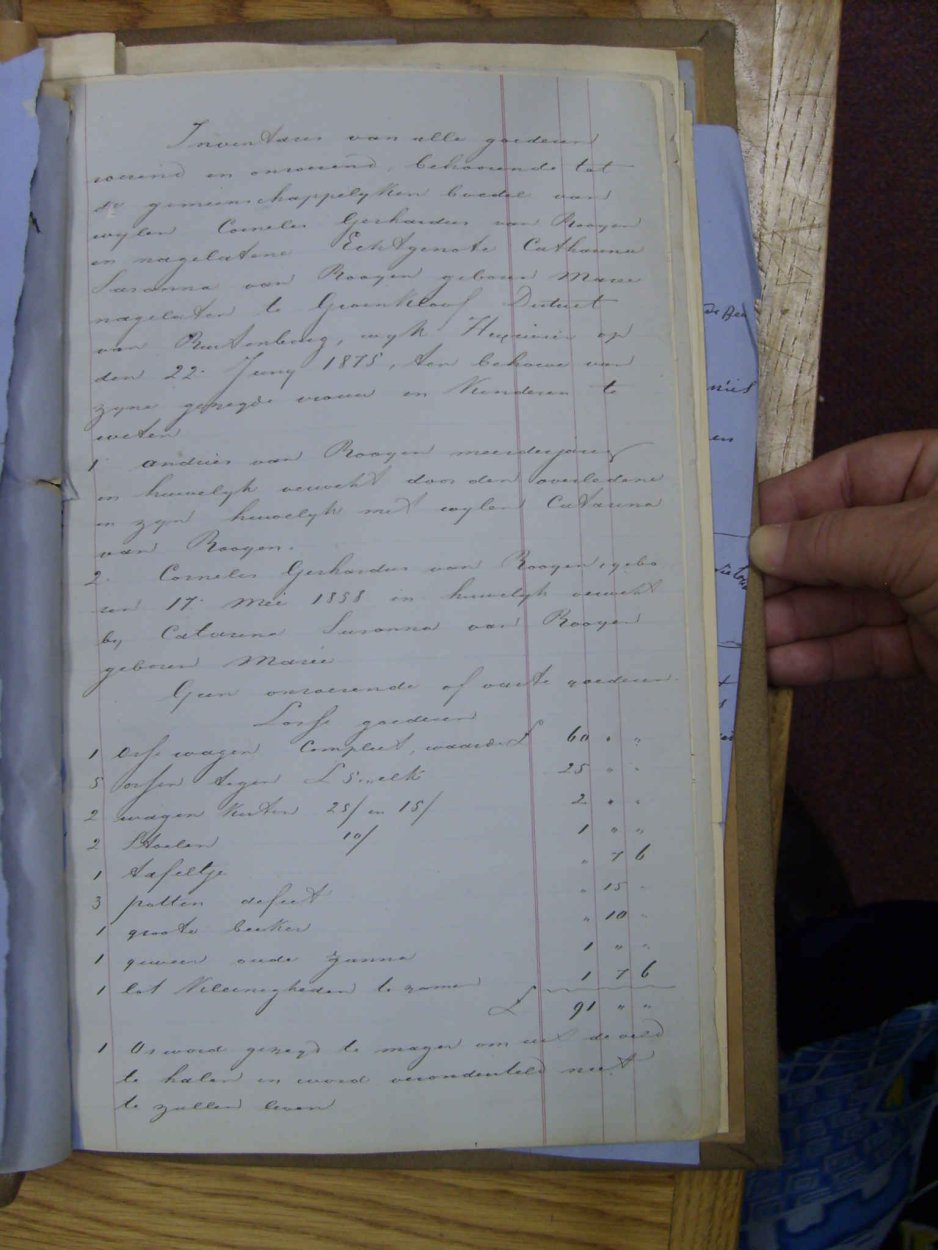 Inventaris van alle goederen
roerend en onroerend, behoorende tot
de gemeenschappelyken boedel van
wylen Cornelis Gerhardus van Rooyen
en nagelatene Echtgenote Catharina
Susanna van Rooyen geboren Maree
nagelaten te Groenkloof District
van Rustenburg, wyk Hexrivier op
den 22 Juny 1875, ten behoeve van
zyne gezegde vrouw en Kinderen te
weten
1 Andries van Rooyen meerderjarig
in huwelyk verwekt door den overledene
in zyn huwelyk met wylen Catarina
van Rooyen.
2. Cornelis Gerhardus van Rooyen, gebo
ren 17 Mei 1858 in huwelyk verwekt
by Catarina Susanna van Rooyen
geboren Maree
Geen onroerende of vaste goederen.
Losse goederen
1 Osse wagen Compleet, waarde £ 60 " "
5 ossen tegen £5 elk 25 " "
2 wagen Kisten 25/ en 15/ 2 " "
2 Stoelen 10/ 1 " "
1 tafeltje " 7 6
3 potten defect " 15 "
1 groote beeker " 10 "
1 geweer oude 1 " "
1 lot Kleinigheden te zamen 1 7 6
£ 91 " "
1 Os word gezegd te mager om uit de veld
te halen en word verondersteld niet
te zullen leven